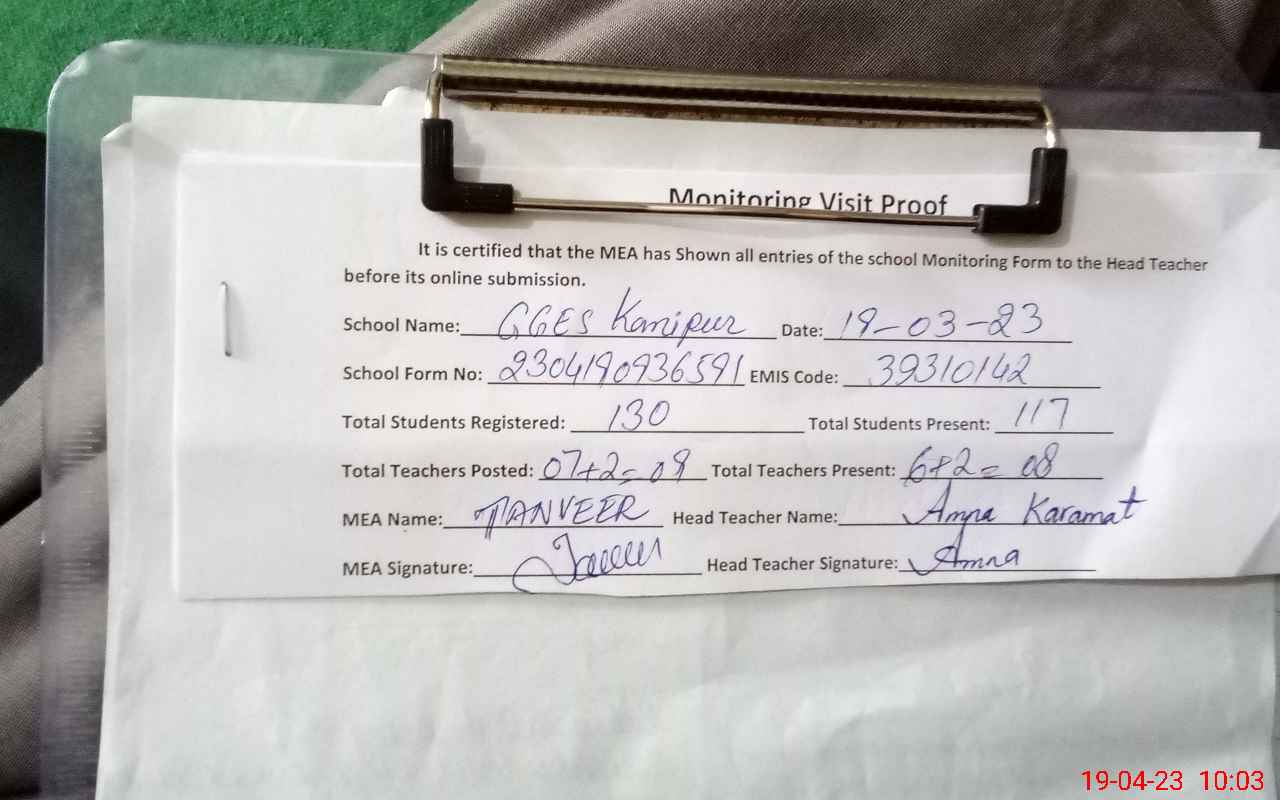 Monitoring Visit Proof
It is certified that the MEA has Shown all entries of the school Monitoring Form to the Head Teacher
before its online submission.
School Name: GGES Kanipur Date: 19-03-23
School Form No: 2304190936591 EMIS Code: 39310142
Total Students Registered: 130 Total Students Present: 117
Total Teachers Posted: 07+2=09 Total Teachers Present: 6+2=08
MEA Name: TANVEER Head Teacher Name: Amna Karamat
MEA Signature: Head Teacher Signature: Amna
19-04-23 10:03